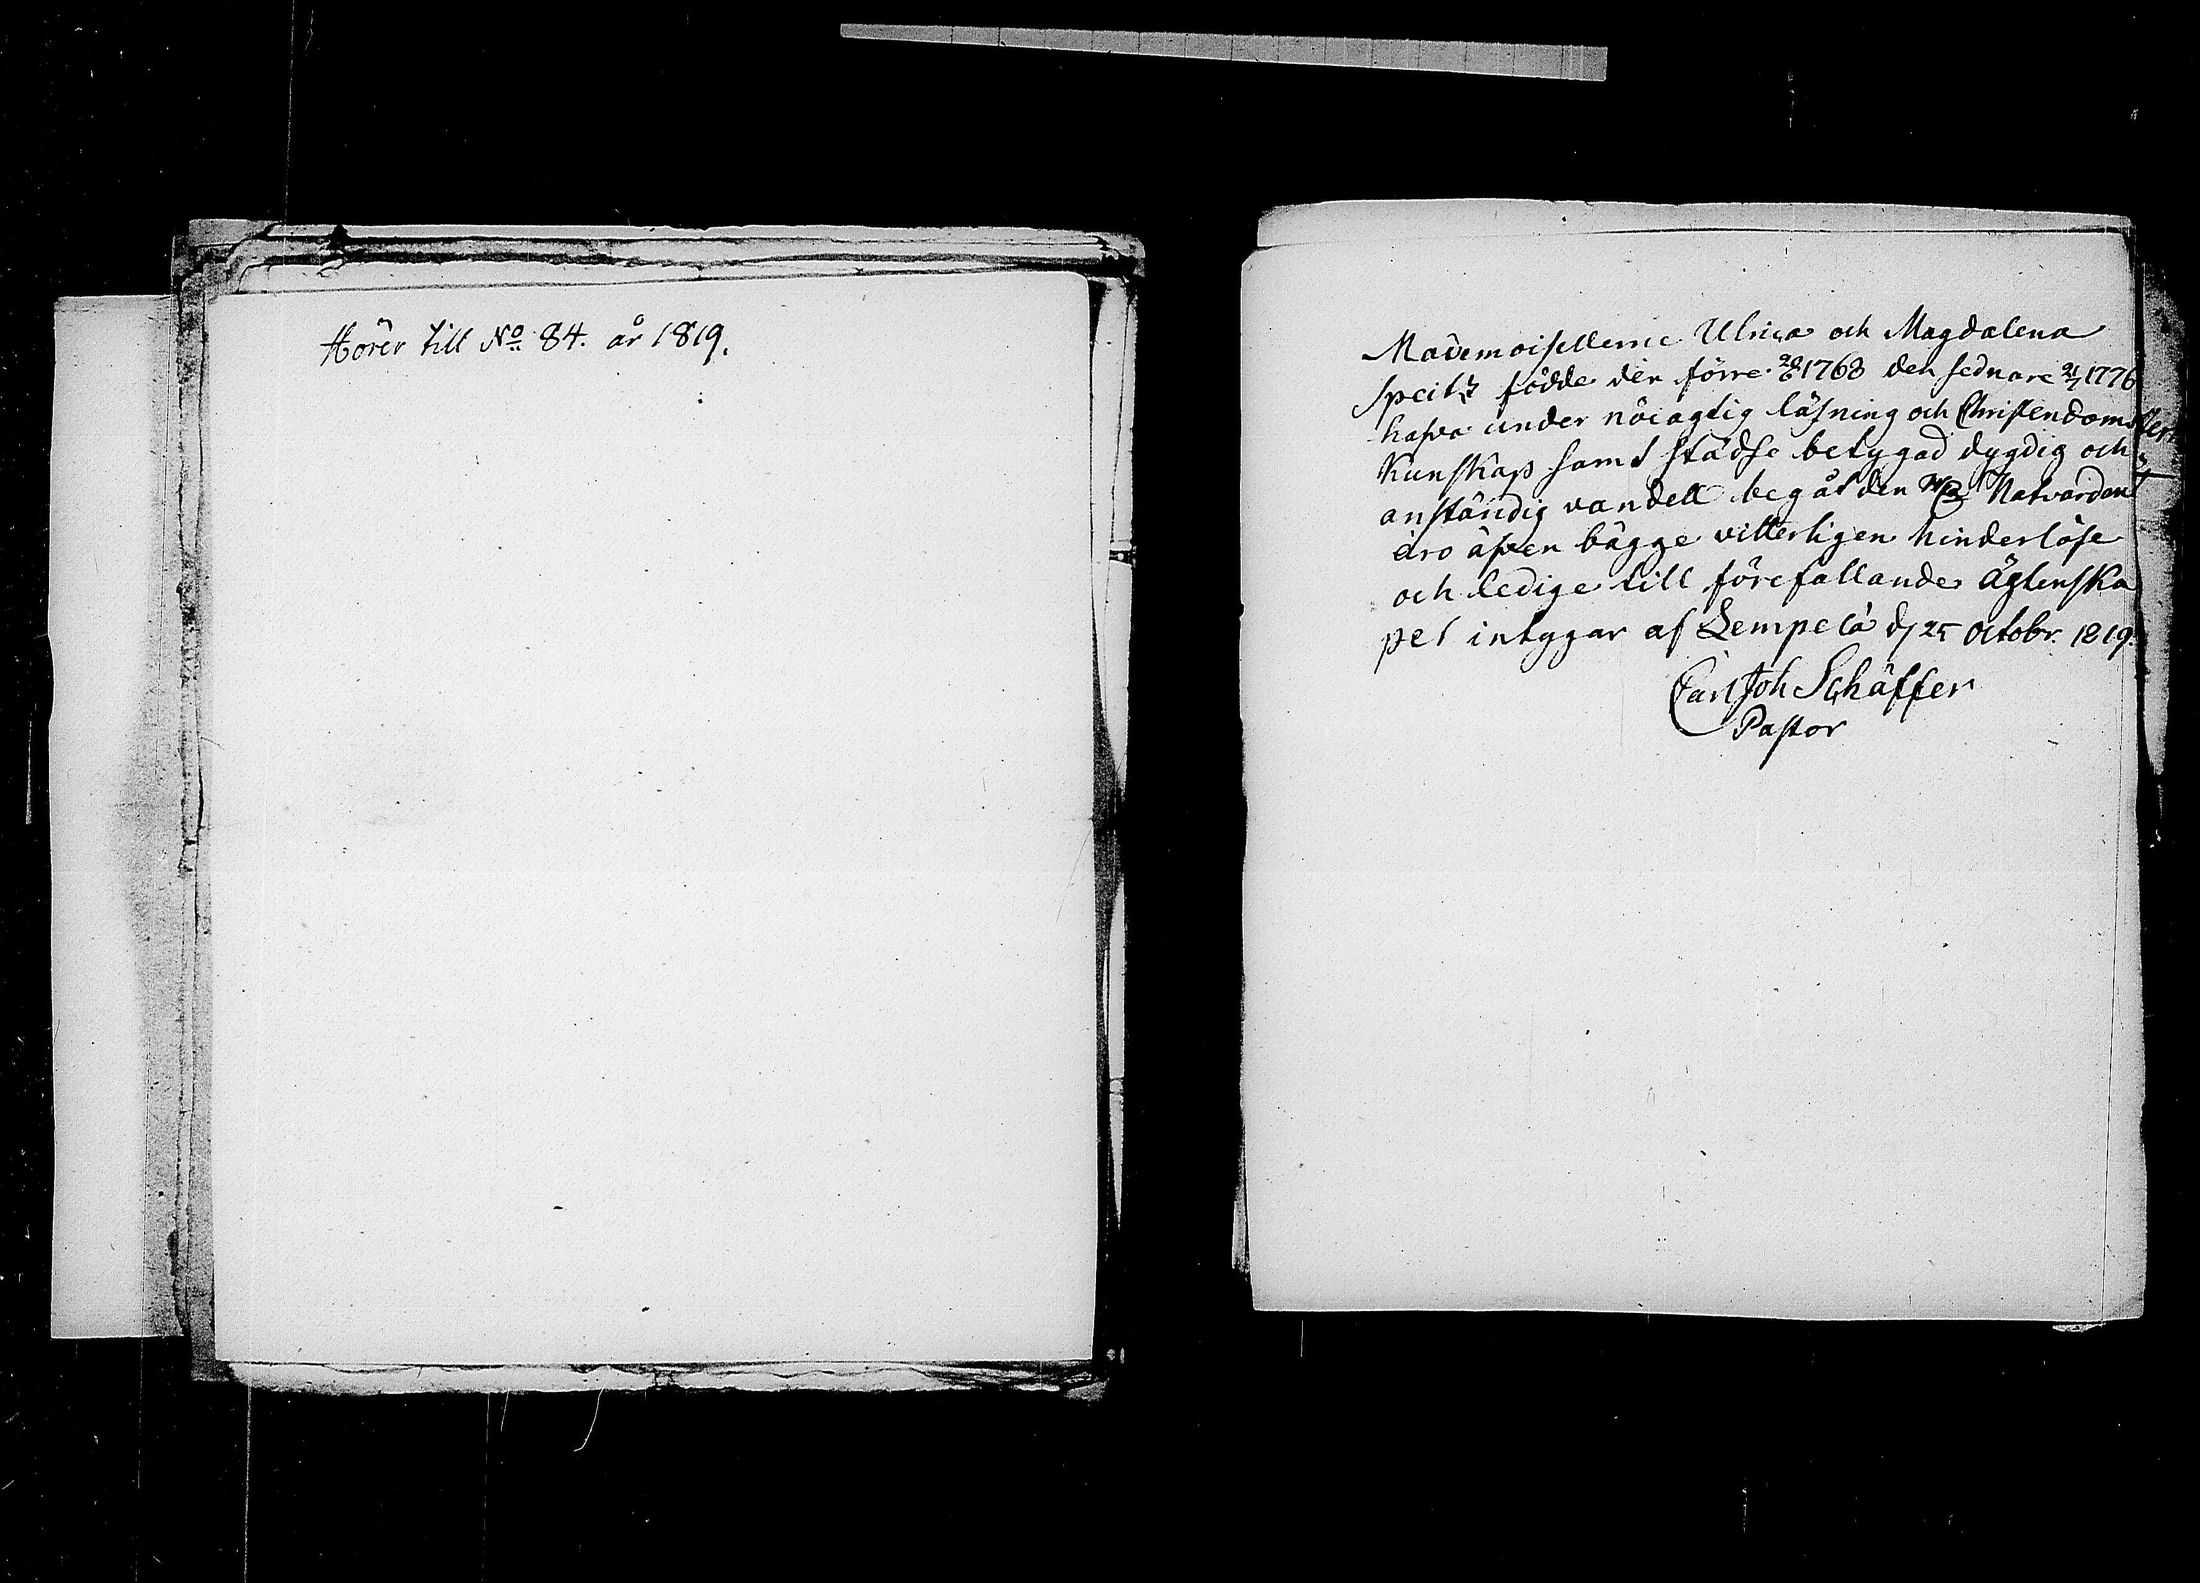 Hörer till No 84. år 1819.
Mademoisellerne Ulrica och Magdalena
Speitz födde den förre 28/6 1768 den sednare 21/7 1776
hafva under nöiagtig läsning och Christendoms
Kunskap samt städse betygad dygdig och
anständig vandell begåt den Nattvarden
äro äfven bägge vitterligen hinderlöse
och ledige till förefallande ägtenska
pet intygar af Lempelä d 25 Octobr. 1819.
Carl Joh Schäffer
Pastor